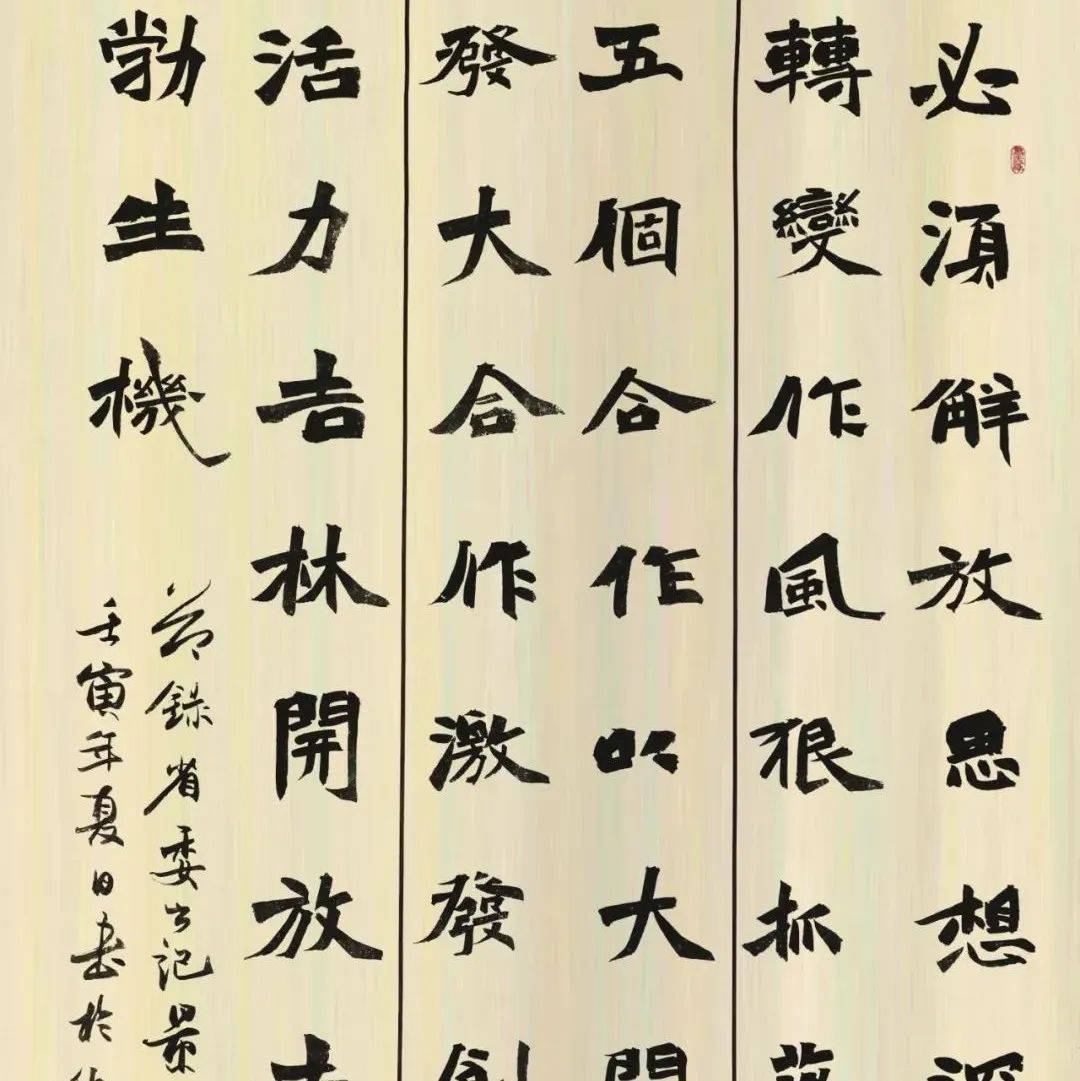 必須解放思想深
轉變作風狠抓落
五個合作以大開
發大合作激發創
活力吉林開放吉
勃生機
節錄省委书記景
壬寅年夏日書於